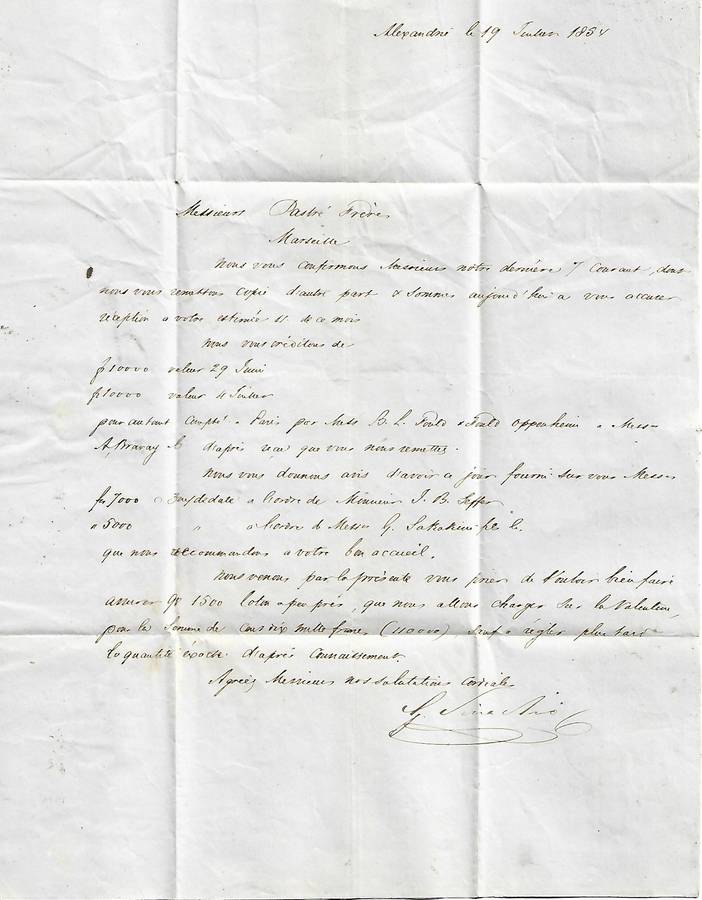 Alexandrie le 19 Juillet 1854
Messieurs Pastré Frères
Marseille
Nous vous confirmons Messieurs notre dernière 7 Courant, dont
nous vous remettons copie d'autre part & sommes aujourd'hui a vous accuser
réception a votre estimée 11 de ce mois
Nous vous créditons de
fr 10000 valeur 29 Juin
fr 10000 valeur 4 Juillet
pour autant compté a Paris par Mess B. L. Fould & Fould Oppenheim a Mess
A. Bravay & C. d'après recu que vous nous remettez.
Nous vous donnons avis d'avoir a jour fourni sur vous Mess
fr 7000 a 3m/ de date a l'ordre de Monsieur J. B.
" 5000 " a l'ordre d Mess G. Sakakini & C.
que nous recommandons a votre bon accueil.
Nous venons par la présente vous prier de vouloir bien faire
assurer 1500 coton a peu près, que nous allons charger sur la Valentine,
pour la Somme de cent dix mille francs (110000) Sauf a régler plus tard
la quantité exacte d'après Connaissement.
Agréez Messieurs nos salutations Cordiales